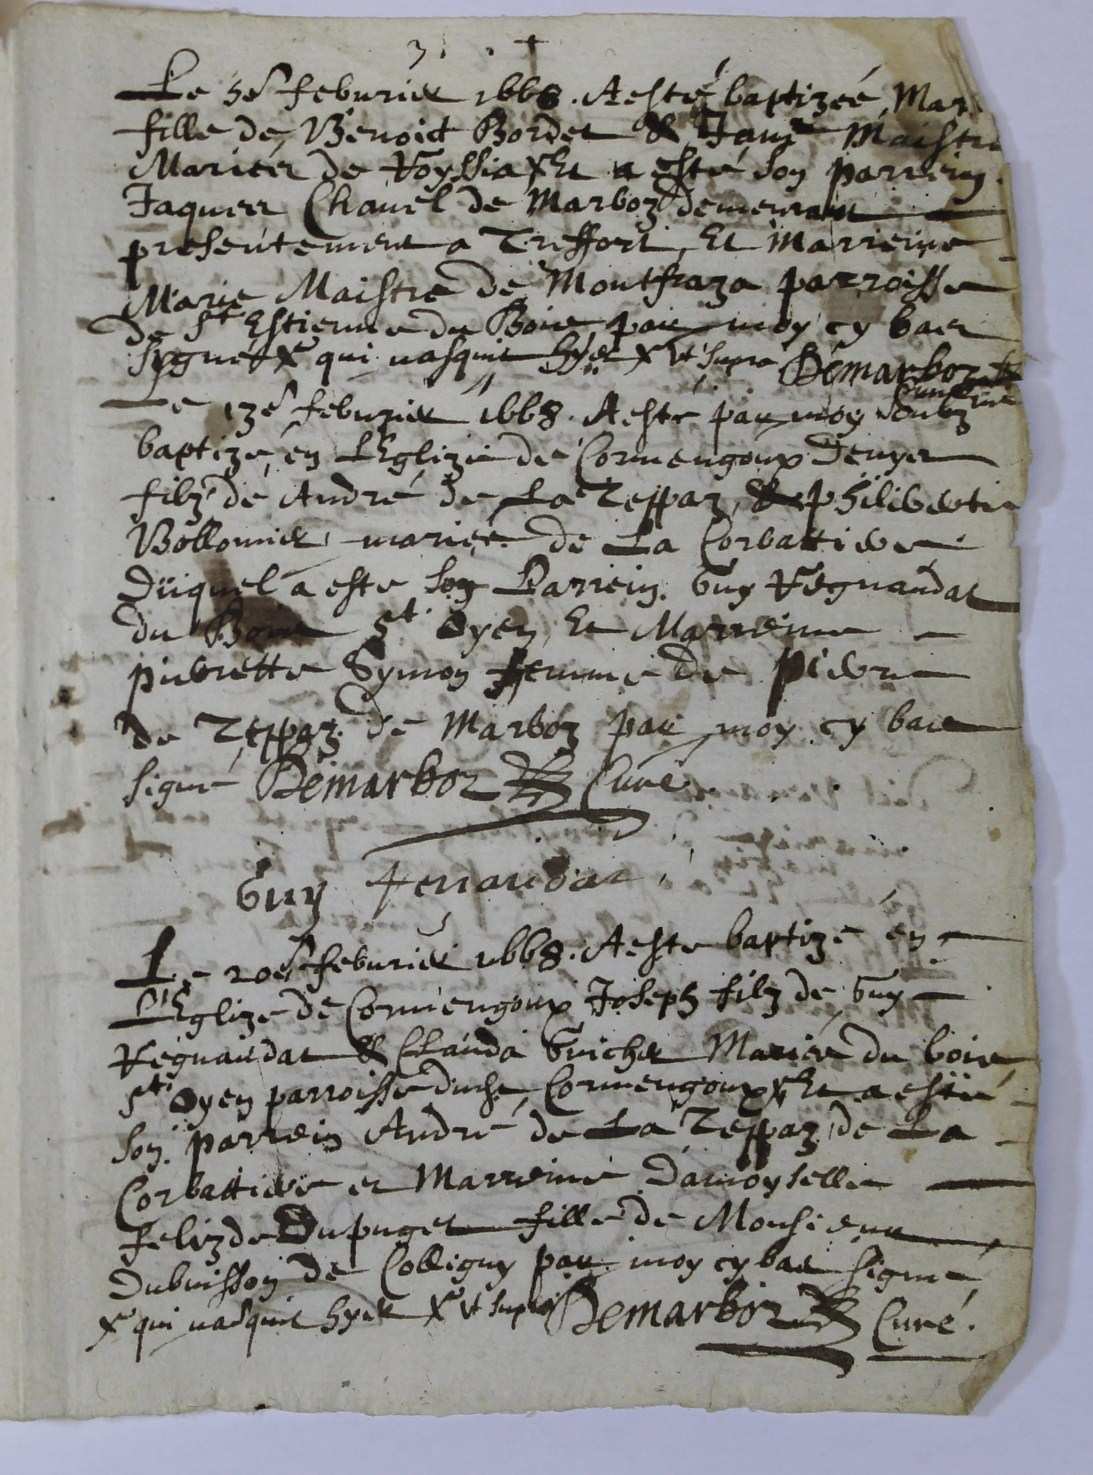 3. +
Le 5e febvrier 1668. A esté baptizeé Mar
fille de Benoict Bordet & Jane Maistre
Mariés de Voyssia X Et a esté son parrein
Jaques Chanel de Marboz demeurant
presentement a Treffort, Et Marreine
Marie Maistre de Montfraza parroisse
de St Estienne du Bois, par moy cy bas
sygné X qui nasquit hyer X Vt supra Demarboz
Le 13e febvrier 1668. A esté par moy soubz
baptizé en L'Eglize de Cormengoux Denys
filz de André de La Teppaz, & Philiberte
Bollomier mariés de La Corbattiere
Düquel a esté son Parrein. Guy Régnaudat
du Bois St Oyen, Et Marreine
pierrette Symon femme de Pierre
de Teppaz de Marboz par moy cy bas
signé Demarboz Curé
Guy Renaudat
Le 20e febvrier 1668. A esté baptizé en
L'Eglize de Cormengoux Joseph filz de Guy
Régnaudat & Clauda Guichet Mariés du bois
St Oyen parroisse dudt Cormengoux X Et a esté
son parrein André de La Teppaz de La
Corbattiere et Marreine Damoyselle
felizde Dupuget fille de Monsieur
Dubuisson de Colligny par moy cy bas signé
X qui nasquit hyer X Vt supra Demarboz Curé.